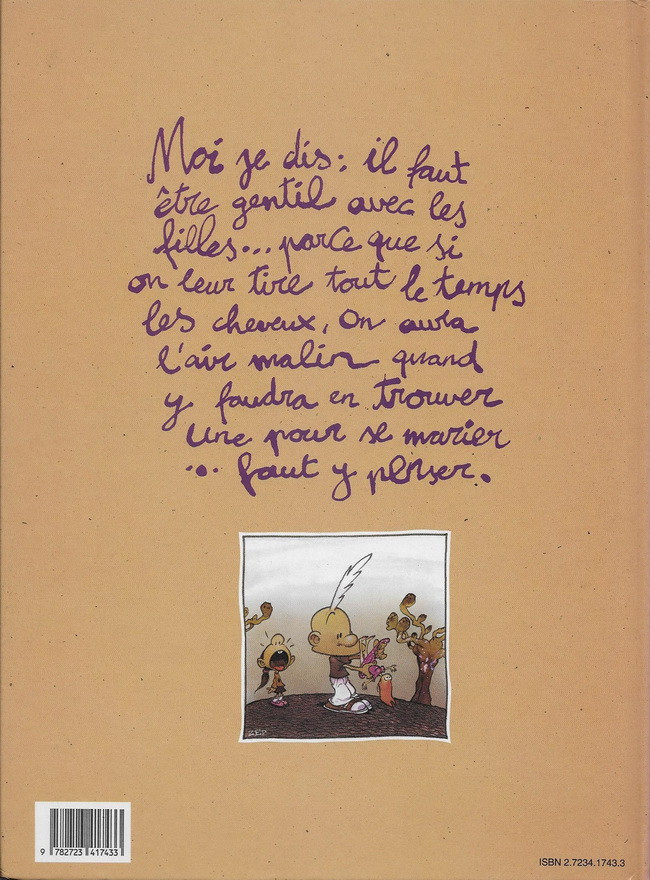 Moi je dis : il faut
être gentil avec les
filles... parce que si
on leur tire tout le temps
les cheveux, On aura
l'air malin quand
y faudra en trouver
une pour se marier
... faut y penser.
ZEP
9 782723 417433
ISBN 2.7234.1743.3